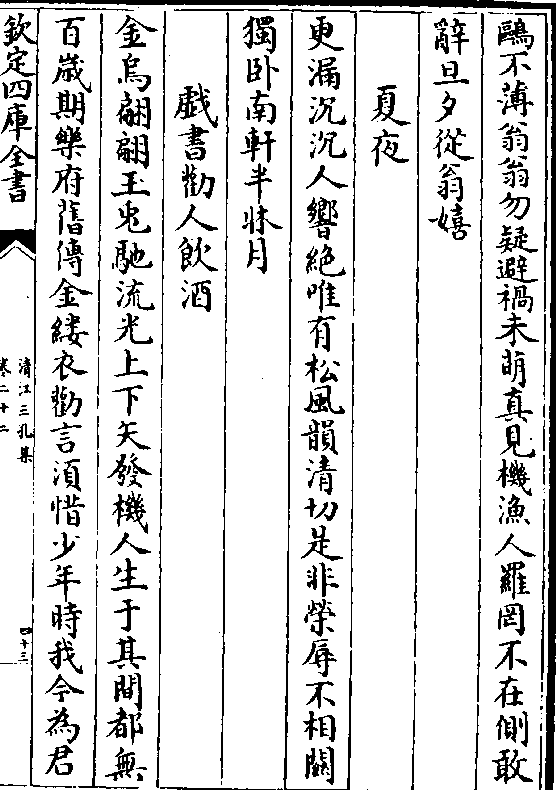 鷗不薄翁翁勿疑避禍未萌真見機漁人羅罔不在側敢
辭旦夕從翁嬉
夏夜
更漏沉沉人響絶唯有松風韻清切是非榮辱不相關
獨卧南軒半牀月
戲書勸人飲酒
金烏翩翩玉兎馳流光上下矢發機人生于其間都無
百歲期樂府舊傳金縷衣勸言須惜少年時我今為君
欽定四庫全書
清江三孔集
卷二十二
四十三